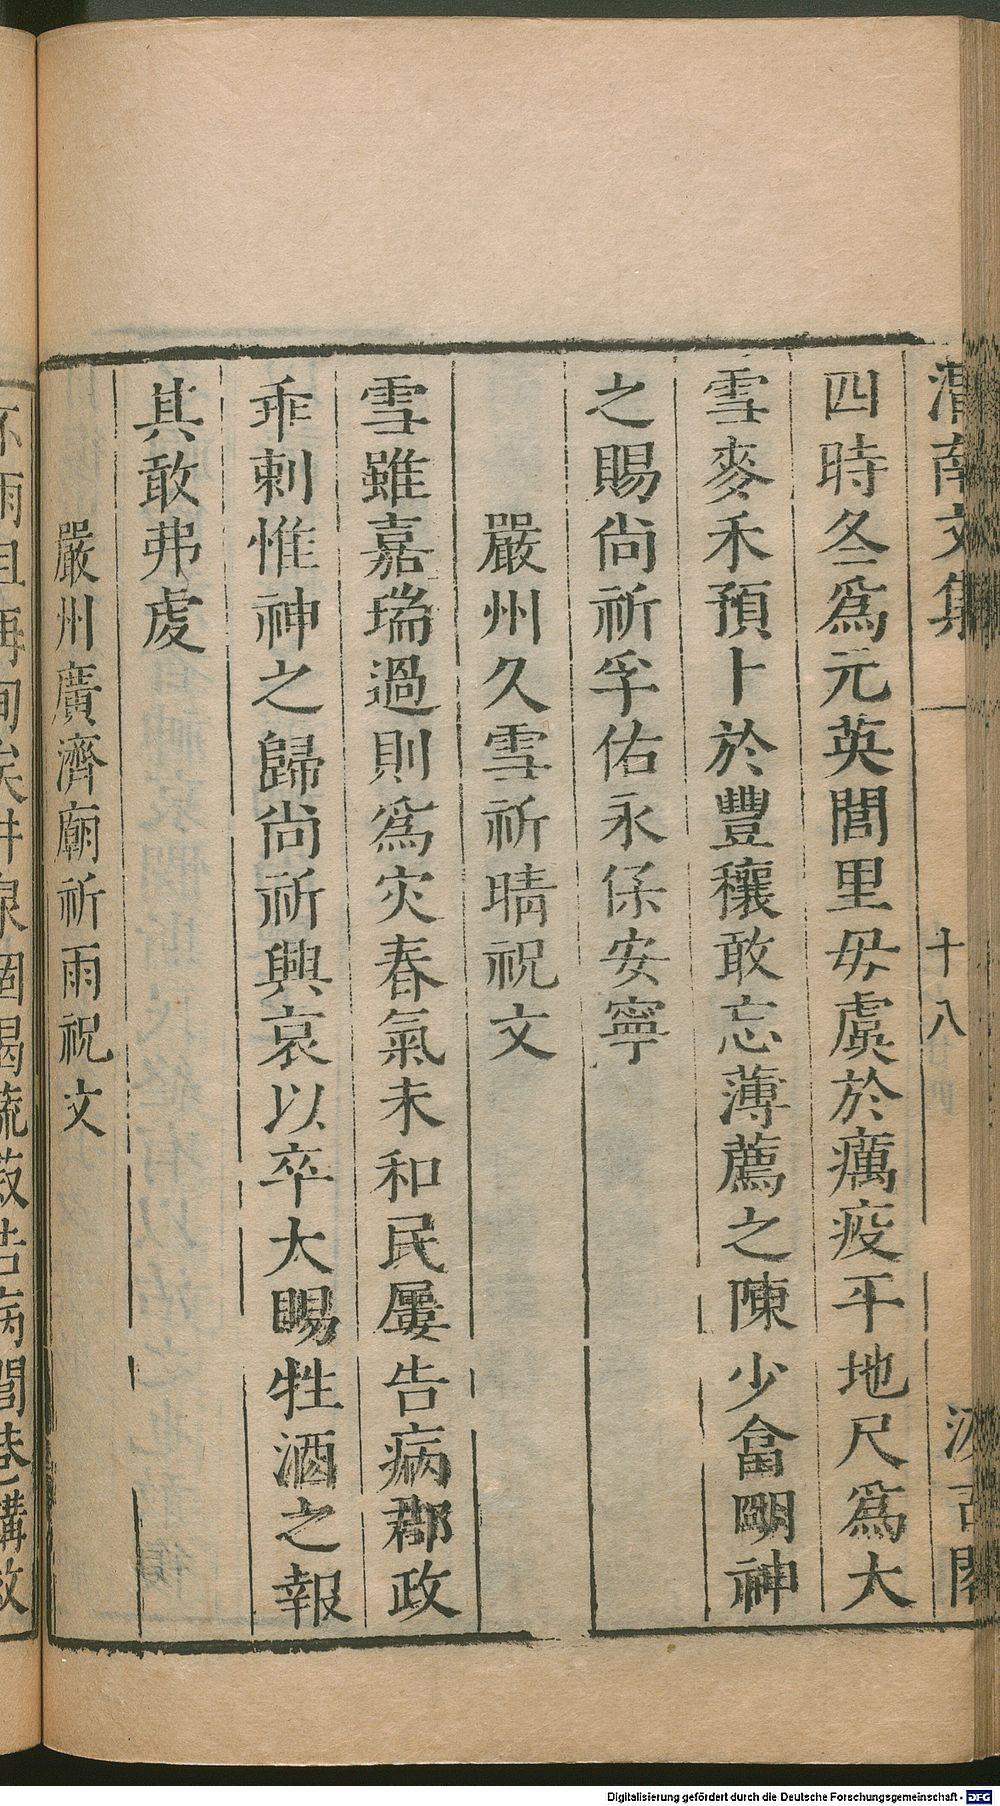 渭南文集
十八
汲古閣
四時冬爲元英閭里毋虞於癘疫平地尺爲大
雪麥禾預卜於豐穰敢忘薄薦之陳少畣朙神
之賜尙祈孚佑永保安寧
嚴州久雪祈晴祝文
雪雖嘉瑞過則爲灾春氣未和民屢告病郡政
乖剌惟神之歸尙祈興哀以卒大賜牲酒之報
其敢弗虔
嚴州廣濟廟祈雨祝文
不雨且再旬矣井泉涸竭蔬菽告病閭巷講救
Digitalisierung gefördert durch die Deutsche Forschungsgemeinschaft - DFG